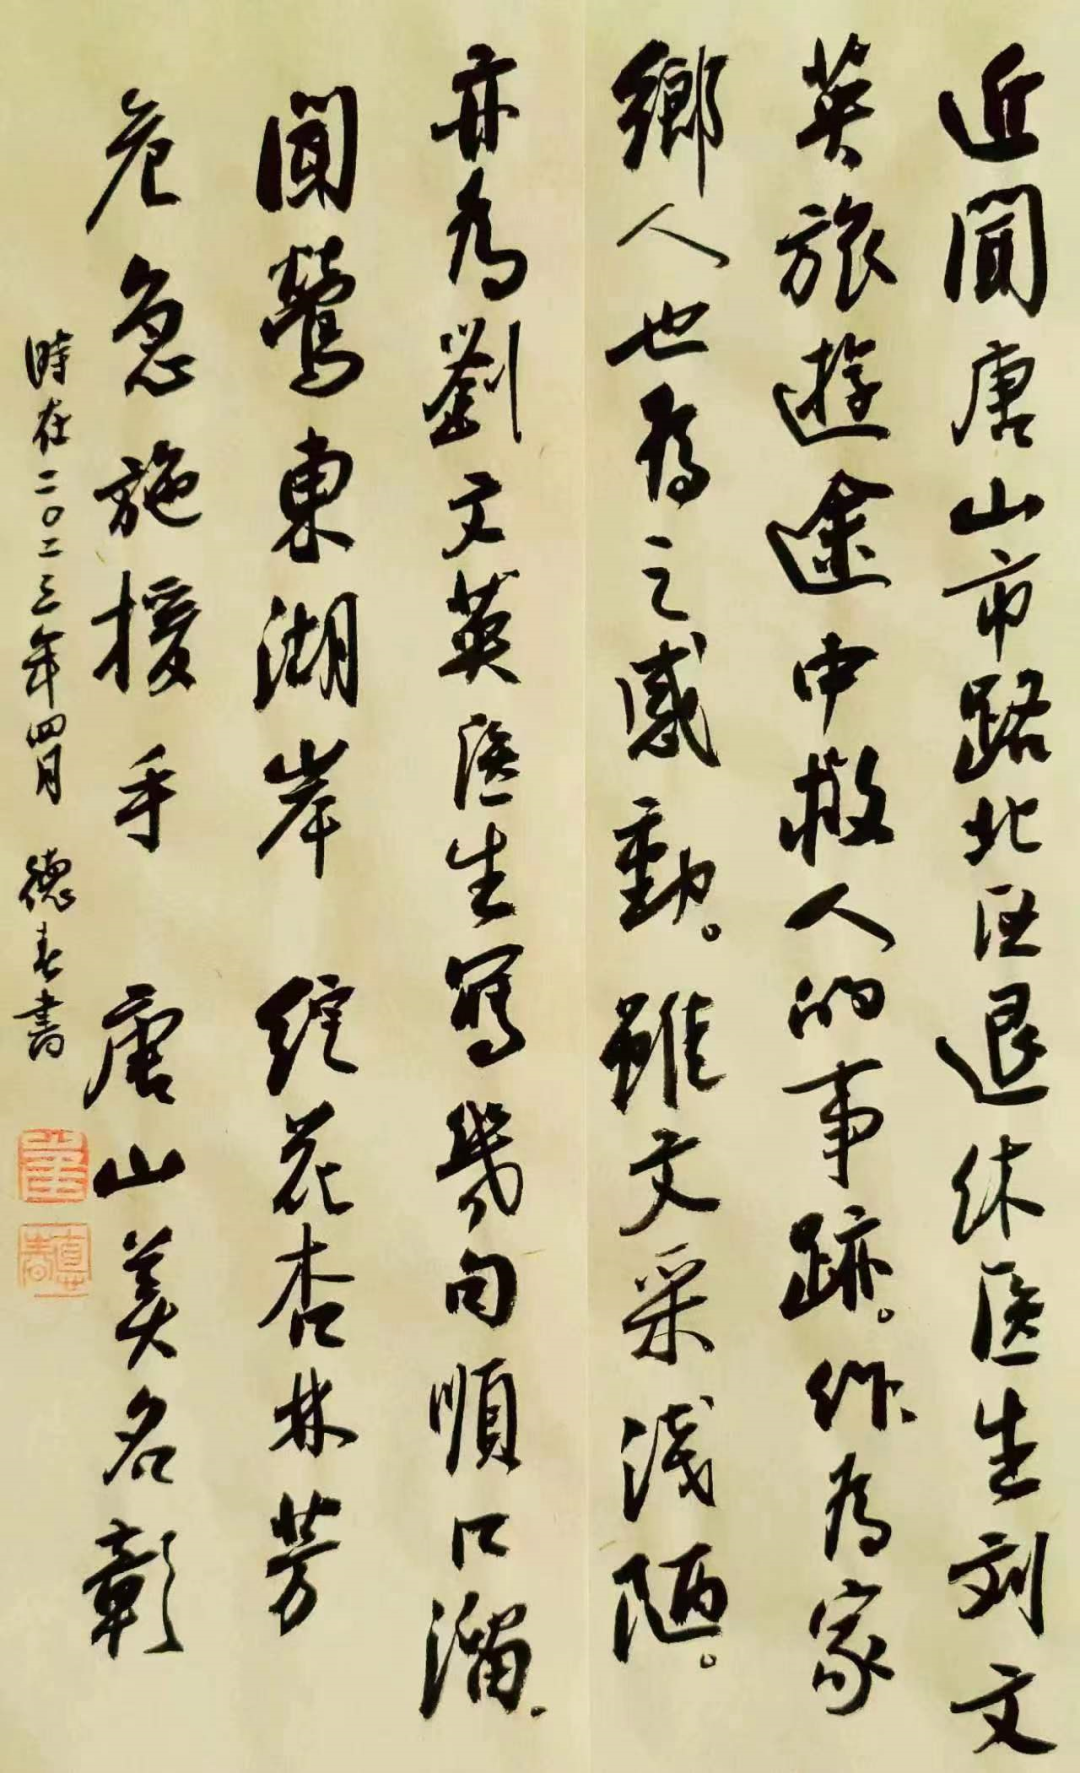 近聞唐山市路北区退休医生刘文
英旅遊途中救人的事跡。作为家
鄉人也為之感動。雖文采浅陋。
亦为劉文英医生寫幾句順口溜.
聞鶯東湖岸 綻花杏林芳
危急施援手 唐山美名彰
時在二〇二三年四月 德春書